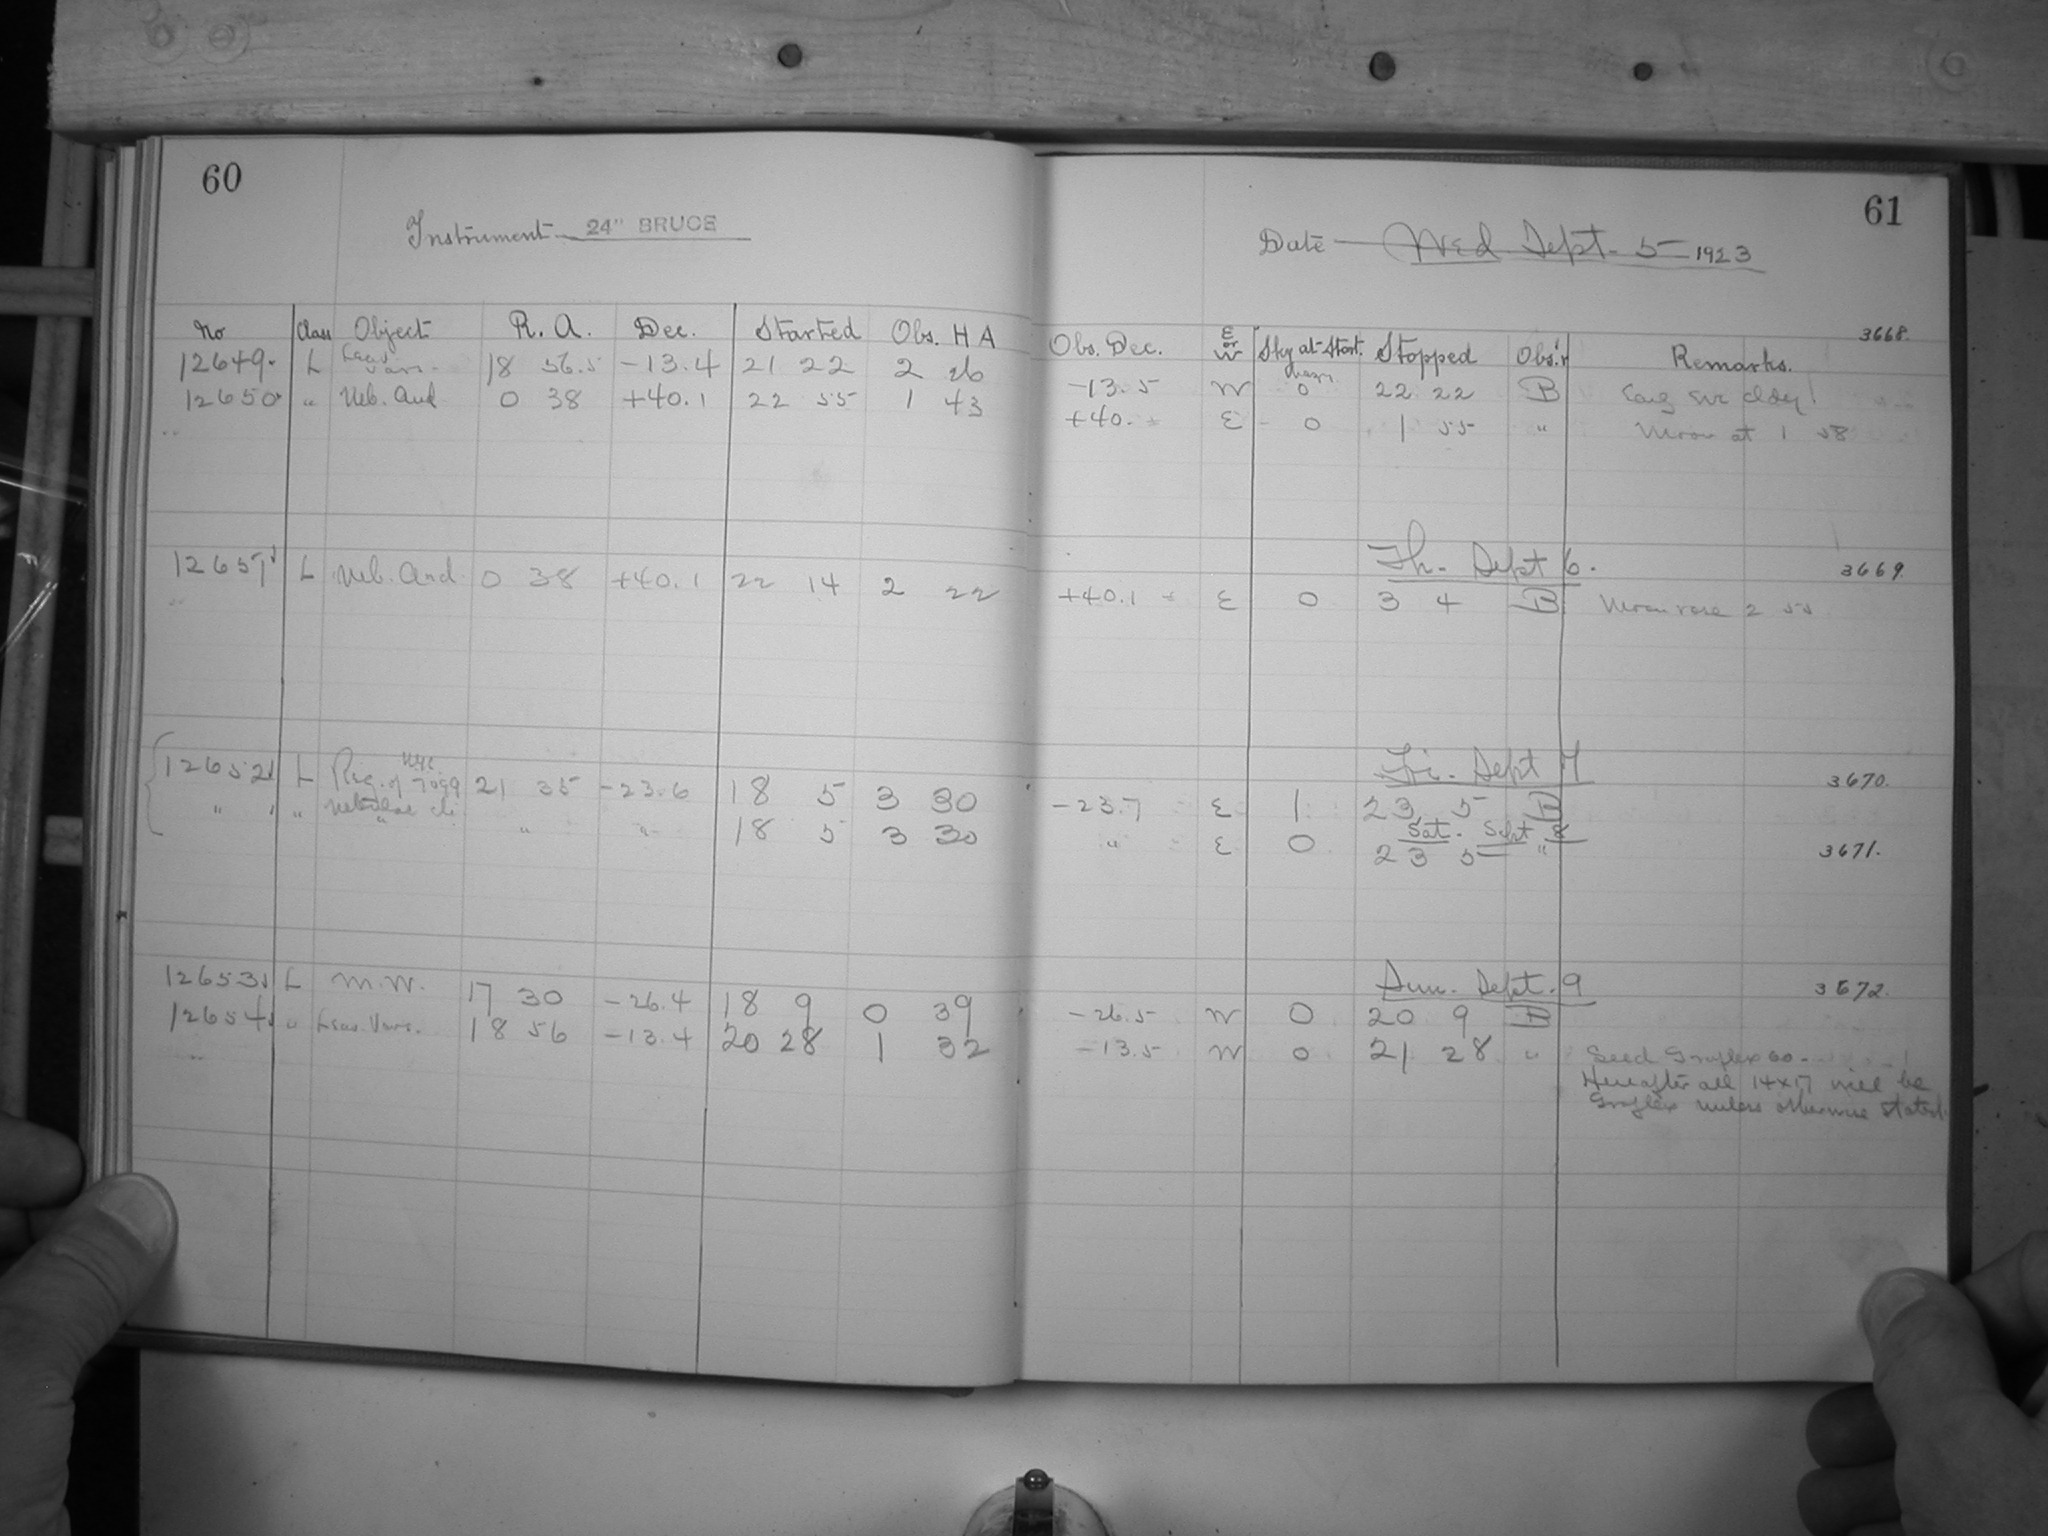 60
Instrument 24" BRUCE
No Class Object R. A. Dec. Started Obs. H A
12649 L Vars. 18 56.5 -13.4 21 22 2 26
12650 " Neb. And 0 38 +40.1 22 55 1 43
12651 L Neb. And. 0 38 +40.1 22 14 2 22
12652 L Reg. of 7099 21 35 -23.6 18 5 3 30
" " " " 18 5 3 30
12653 L M.W. 17 30 -26.4 18 9 0 39
12654 " Vars. 18 56 -13.4 20 28 1 32
61
Date Wed Sept. 5 1923
3668.
Obs. Dec. E or W Sky at Start. Stopped Obs'r Remarks.
-13.5 W 0 22 22 B
+40. E 0 1 55 " Moon at 1 58
Th. Sept 6.
3669.
+40.1 E 0 3 4 B Moon rose 2 55
Fri. Sept 7
3670.
-23.7 E 1 23 5 B
Sat. Sept 8
" E 0 23 5 "
3671.
Sun. Sept. 9
3672.
-26.5 W 0 20 9 B
-13.5 W 0 21 28 " Seed Graflex 60
Hereafter all 14x17 will be
Graflex unless otherwise stated.